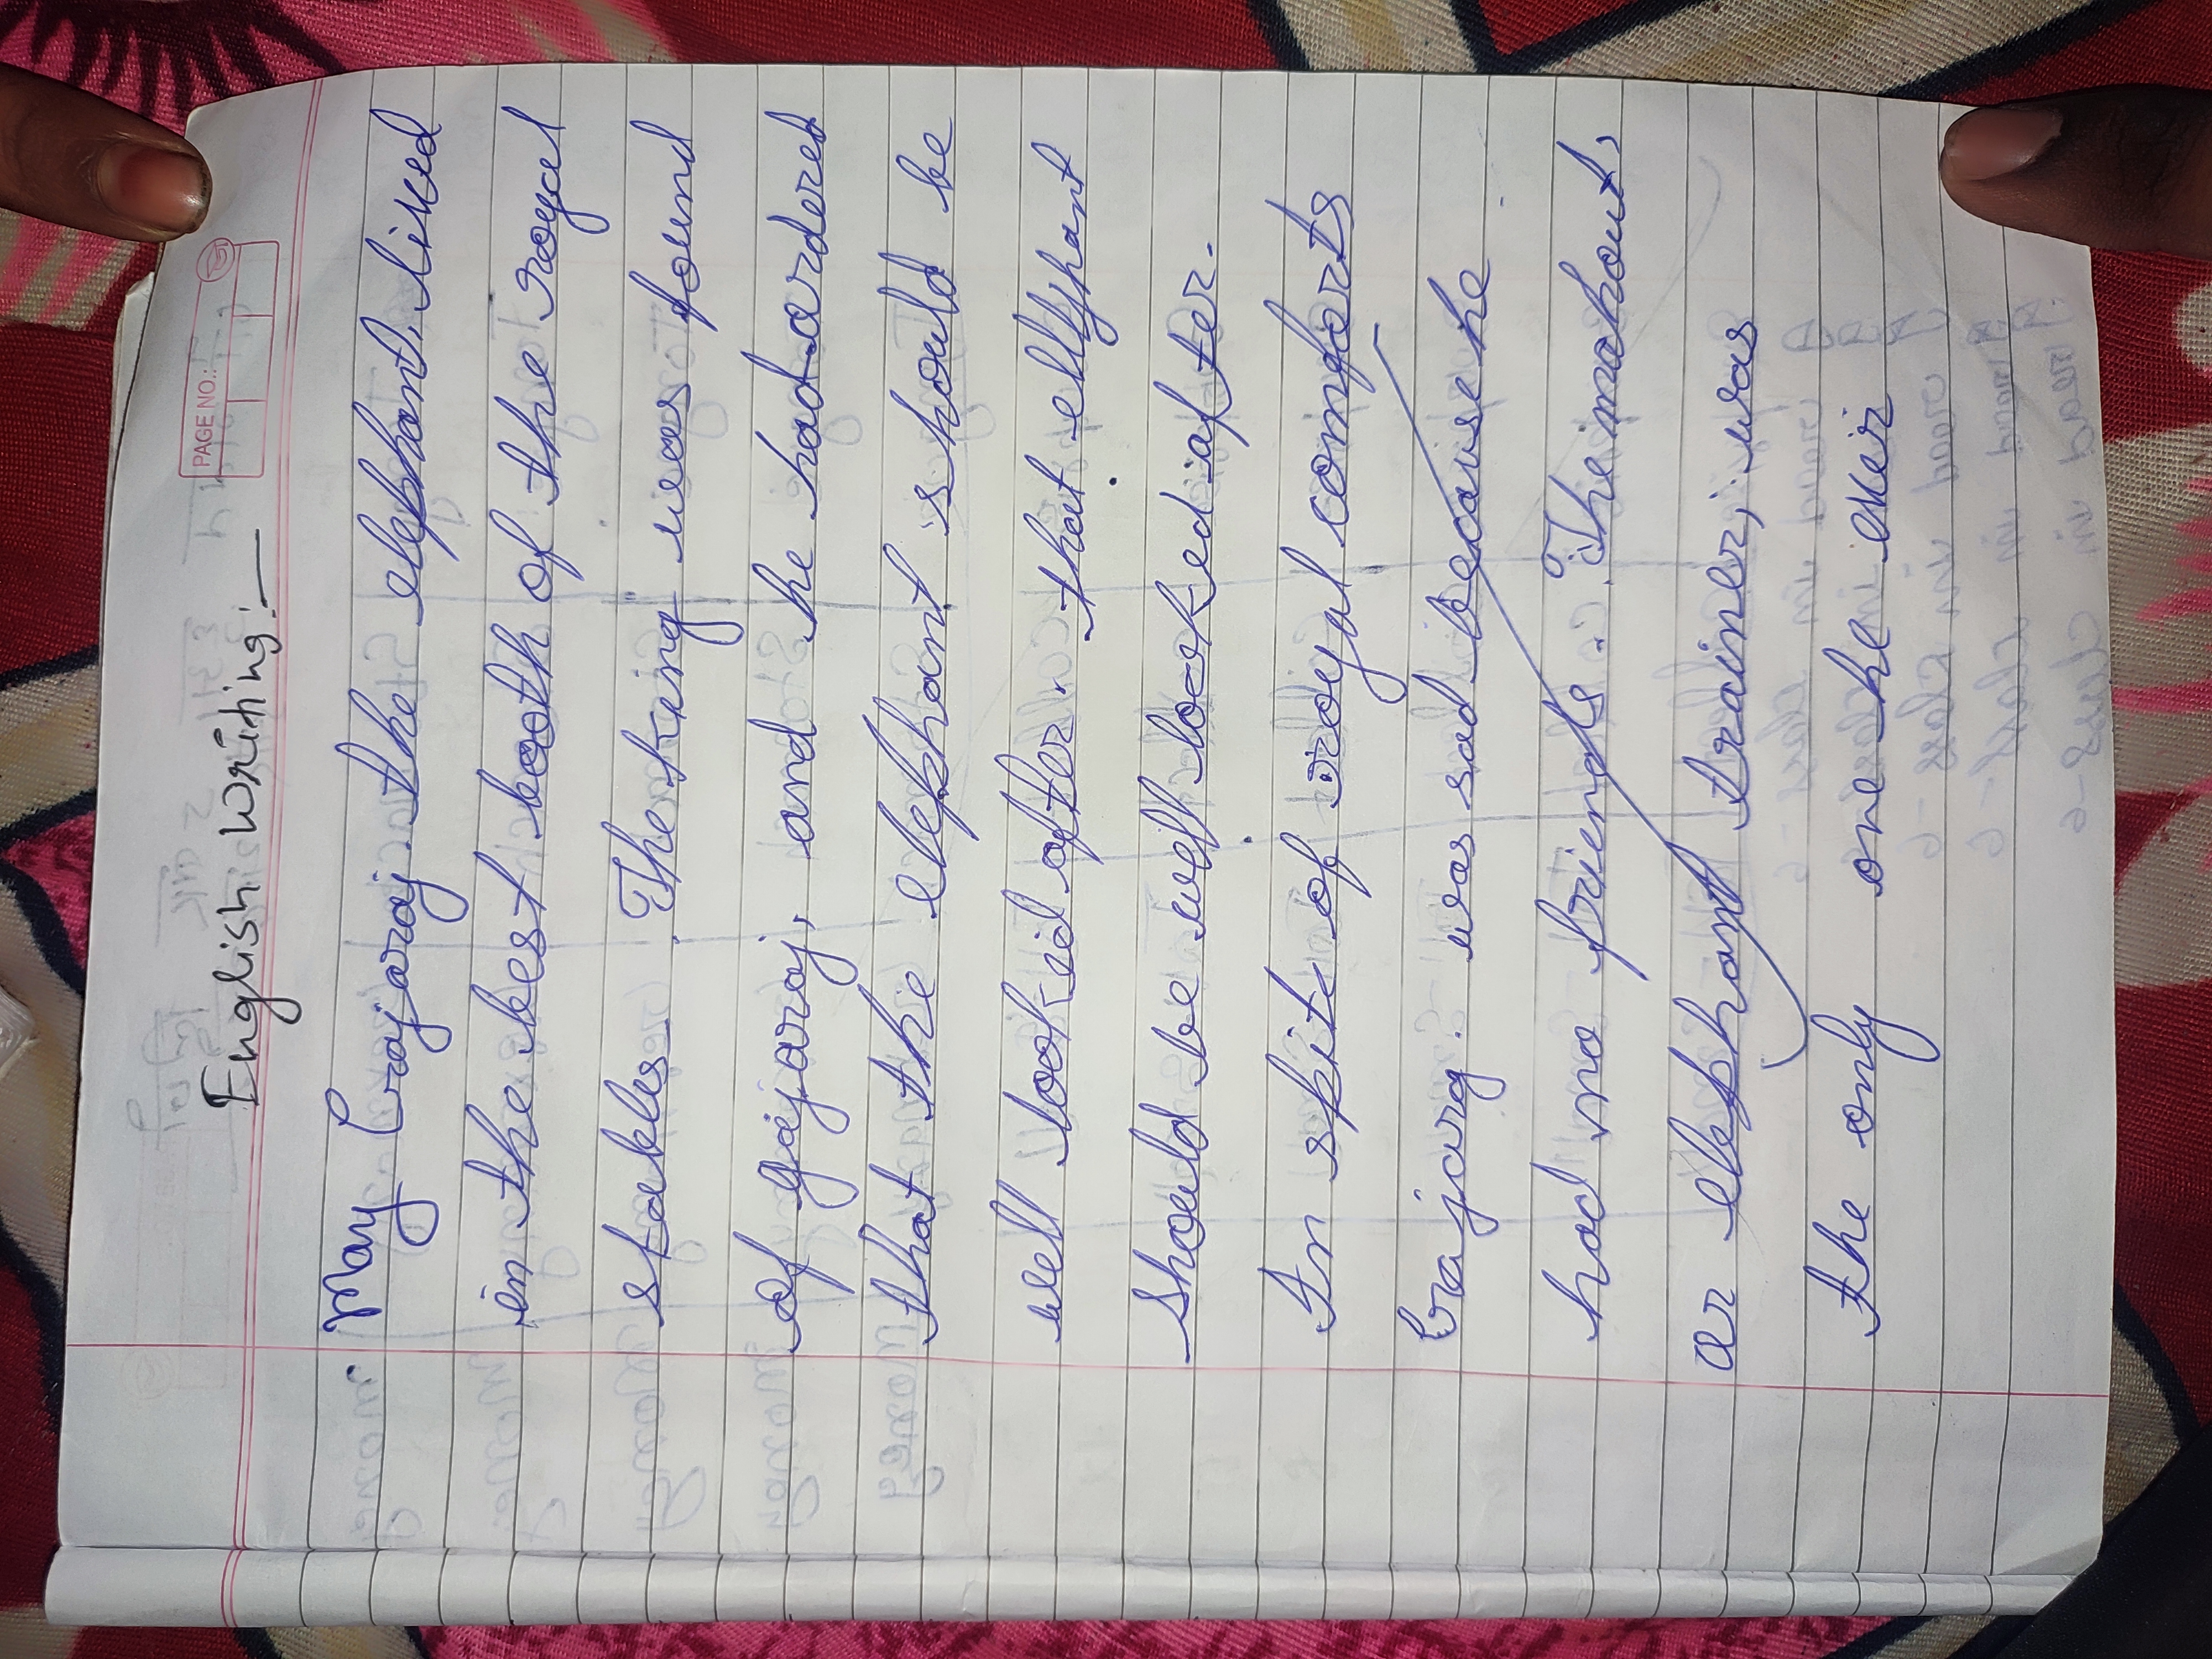 PAGE NO.:
English writing:—
May Gajaraj the elephant. lived
in the best booth of the royal
stables. The king was found
of gajaraj, and he had ordered
that the elephant should be
well looked after. that ellyhant
should be well looked after.
In spite of royal comforts
Gajarag. was sad because he
had no friends. The mahout,
or elephant trainer, was
the only one he ever